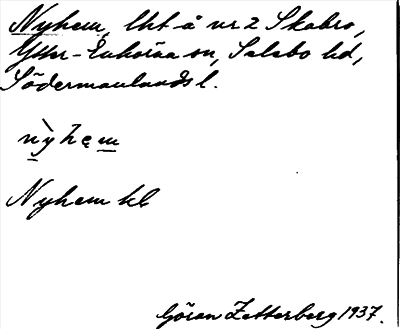 Nyhem, lht å nr 2 Skobro,
Ytter-Enhörna sn, Selebo hd,
Södermanlands l.
nỳhęm
Nyhem hb
Göran Zetterberg 1937.